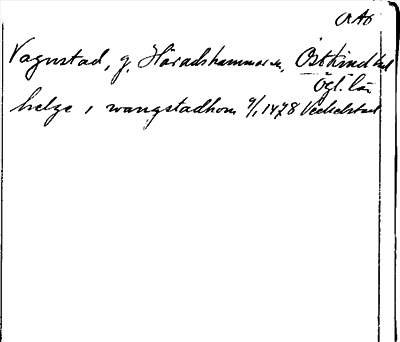 ORAO
Vagnstad, g. Häradshammar sn, Östkind hd
Ögl. län
helge i wangstadhom 9/1 1478 Veckelstad